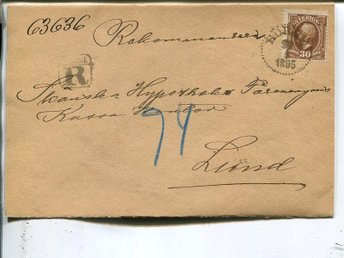 63636 Rekommenderas
SVERIGE
30
1895
R
Skånska Hypotheks Föreningens
Kassa Kontor
94
Lund